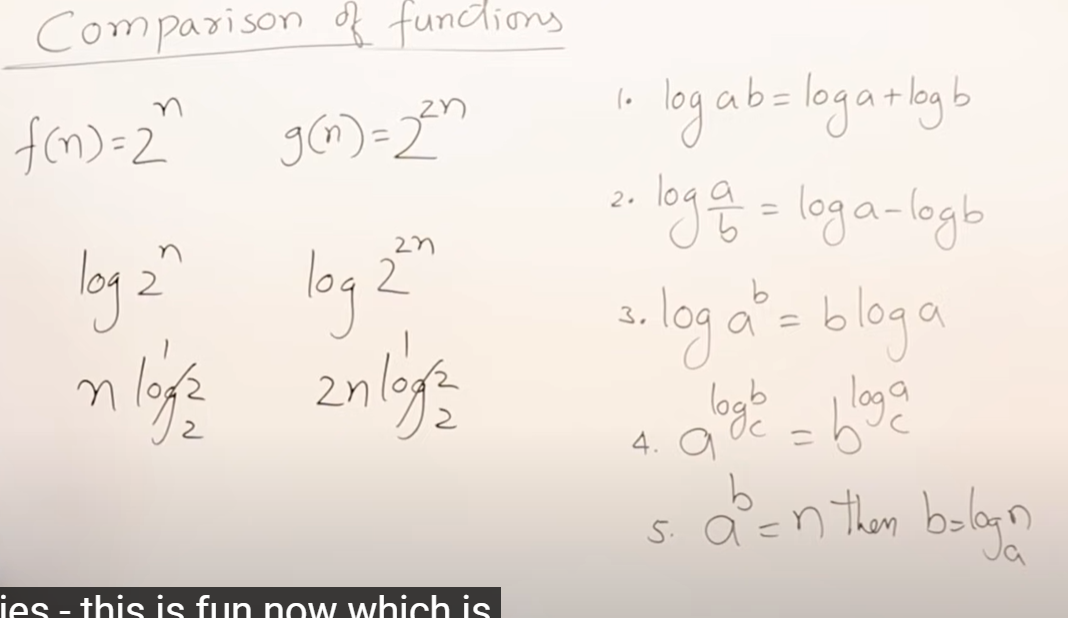 Comparison of functions
f(n)=2^n g(n)=2^2n
log 2^n log 2^2n
n log₂2 1 2n log₂2 1
1. log ab = log a + log b
2. log a/b = log a - log b
3. log a^b = b log a
4. a^log_c b = b^log_c a
5. a^b = n then b = log_a n
ies - this is fun now which is